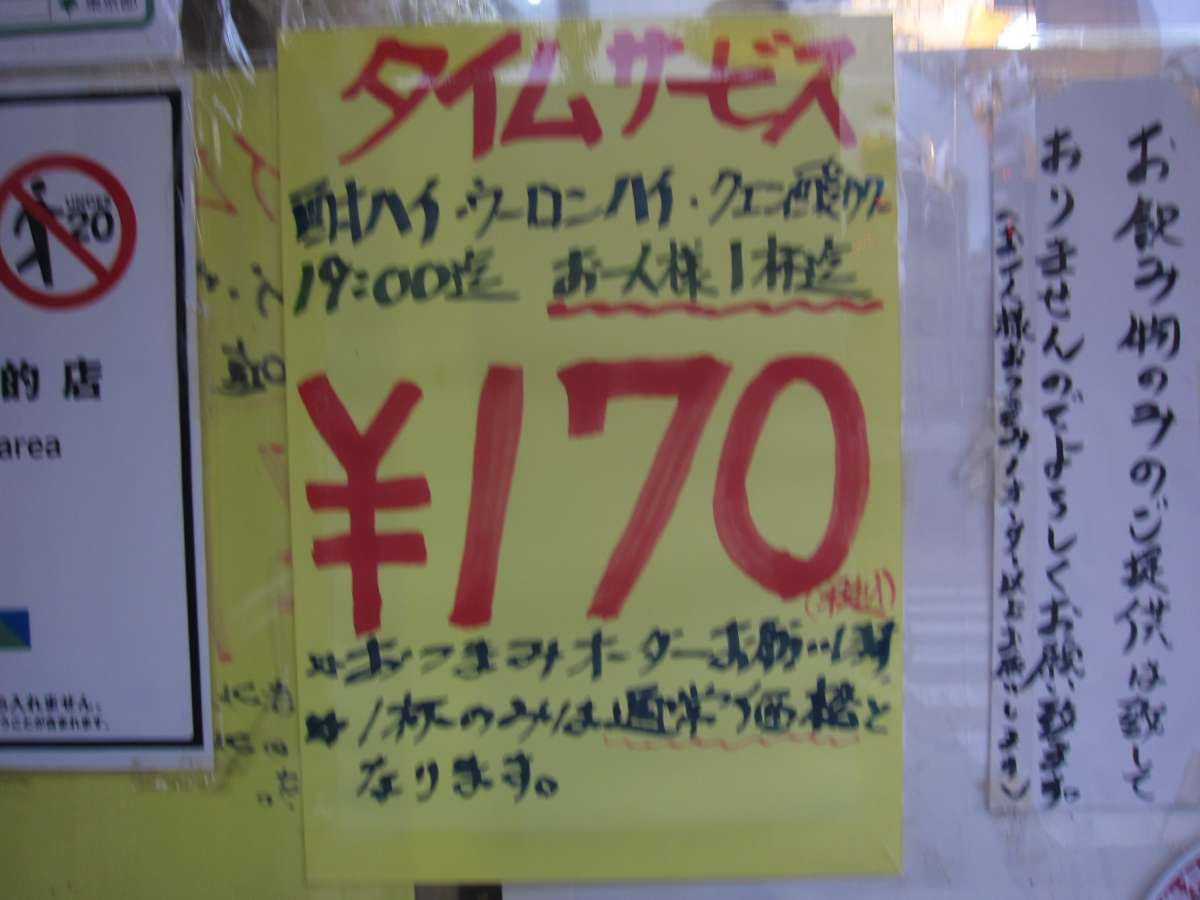 タイムサービス
酎ハイ・ウーロンハイ・クエン酸サワー
19:00迄 お一人様1杯迄
¥170
(税込)
☆おつまみオーダーお願い致
☆1杯のみは通常価格と
なります。
お飲み物のみのご提供は致して
おりませんのでよろしくお願い致します。
(お一人様おつまみ1オーダー以上お願いします)
UNDER
20
的 店
area
入れません。